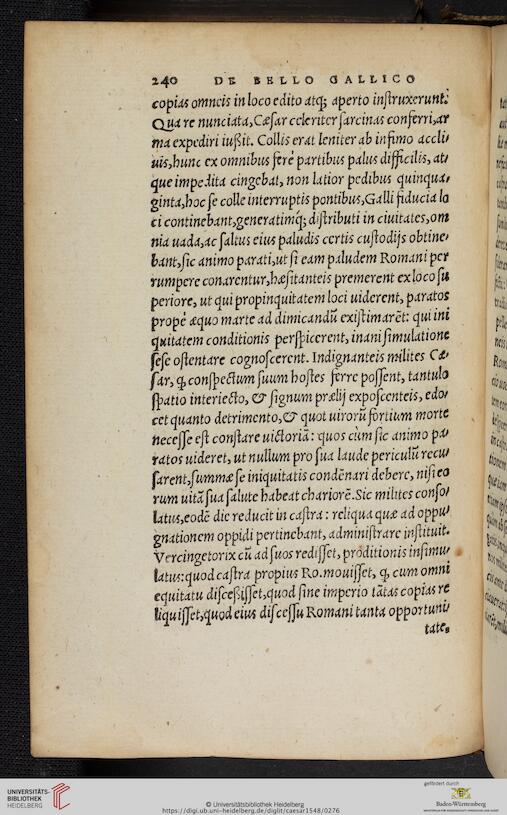 240 DE BELLO GALLICO
copias omneis in loco edito atq; aperto instruxerunt.
Qua re nunciata, Cæsar celeriter sarcinas conferri, ar/
ma expediri iußit. Collis erat leniter ab infimo accli/
uis, hunc ex omnibus feré partibus palus difficilis, at/
que impedita cingebat, non latior pedibus quinqua/
ginta, hoc se colle interruptis pontibus, Galli fiducia lo
ci continebant, generatimq; distributi in ciuitates, om
nia uada, ac saltus eius paludis certis custodijs obtine/
bant, sic animo parati, ut si eam paludem Romani per
rumpere conarentur, hæsitanteis premerent ex loco su
periore, ut qui propinquitatem loci uiderent, paratos
propé æquo marte ad dimicandū existimarēt: qui ini
quitatem conditionis perspicerent, inani simulatione
sese ostentare cognoscerent. Indignanteis milites Cæ/
sar, q, conspectum suum hostes ferre possent, tantulo
spatio interiecto, & signum prælij exposcenteis, edo/
cet quanto detrimento, & quot uirorū fortium morte
necesse est constare uictoriā: quos cùm sic animo pa/
ratos uideret, ut nullum pro sua laude periculū recu/
sarent, summæ se iniquitatis condēnari debere, nisi eo
rum uitā sua salute habeat chariorē. Sic milites conso/
latus, eodē die reducit in castra: reliqua quæ ad oppu/
gnationem oppidi pertinebant, administrare instituit.
Vercingetorix cū ad suos redisset, proditionis insimu/
latus: quod castra propius Ro. mouisset, q, cum omni
equitatu discessisset, quod sine imperio tātas copias re
liquisset, quod eius discessu Romani tanta opportuni/
tate
UNIVERSITÄTS-
BIBLIOTHEK
HEIDELBERG
© Universitätsbibliothek Heidelberg
https://digi.ub.uni-heidelberg.de/diglit/caesar1548/0276
gefördert durch
Baden-Württemberg